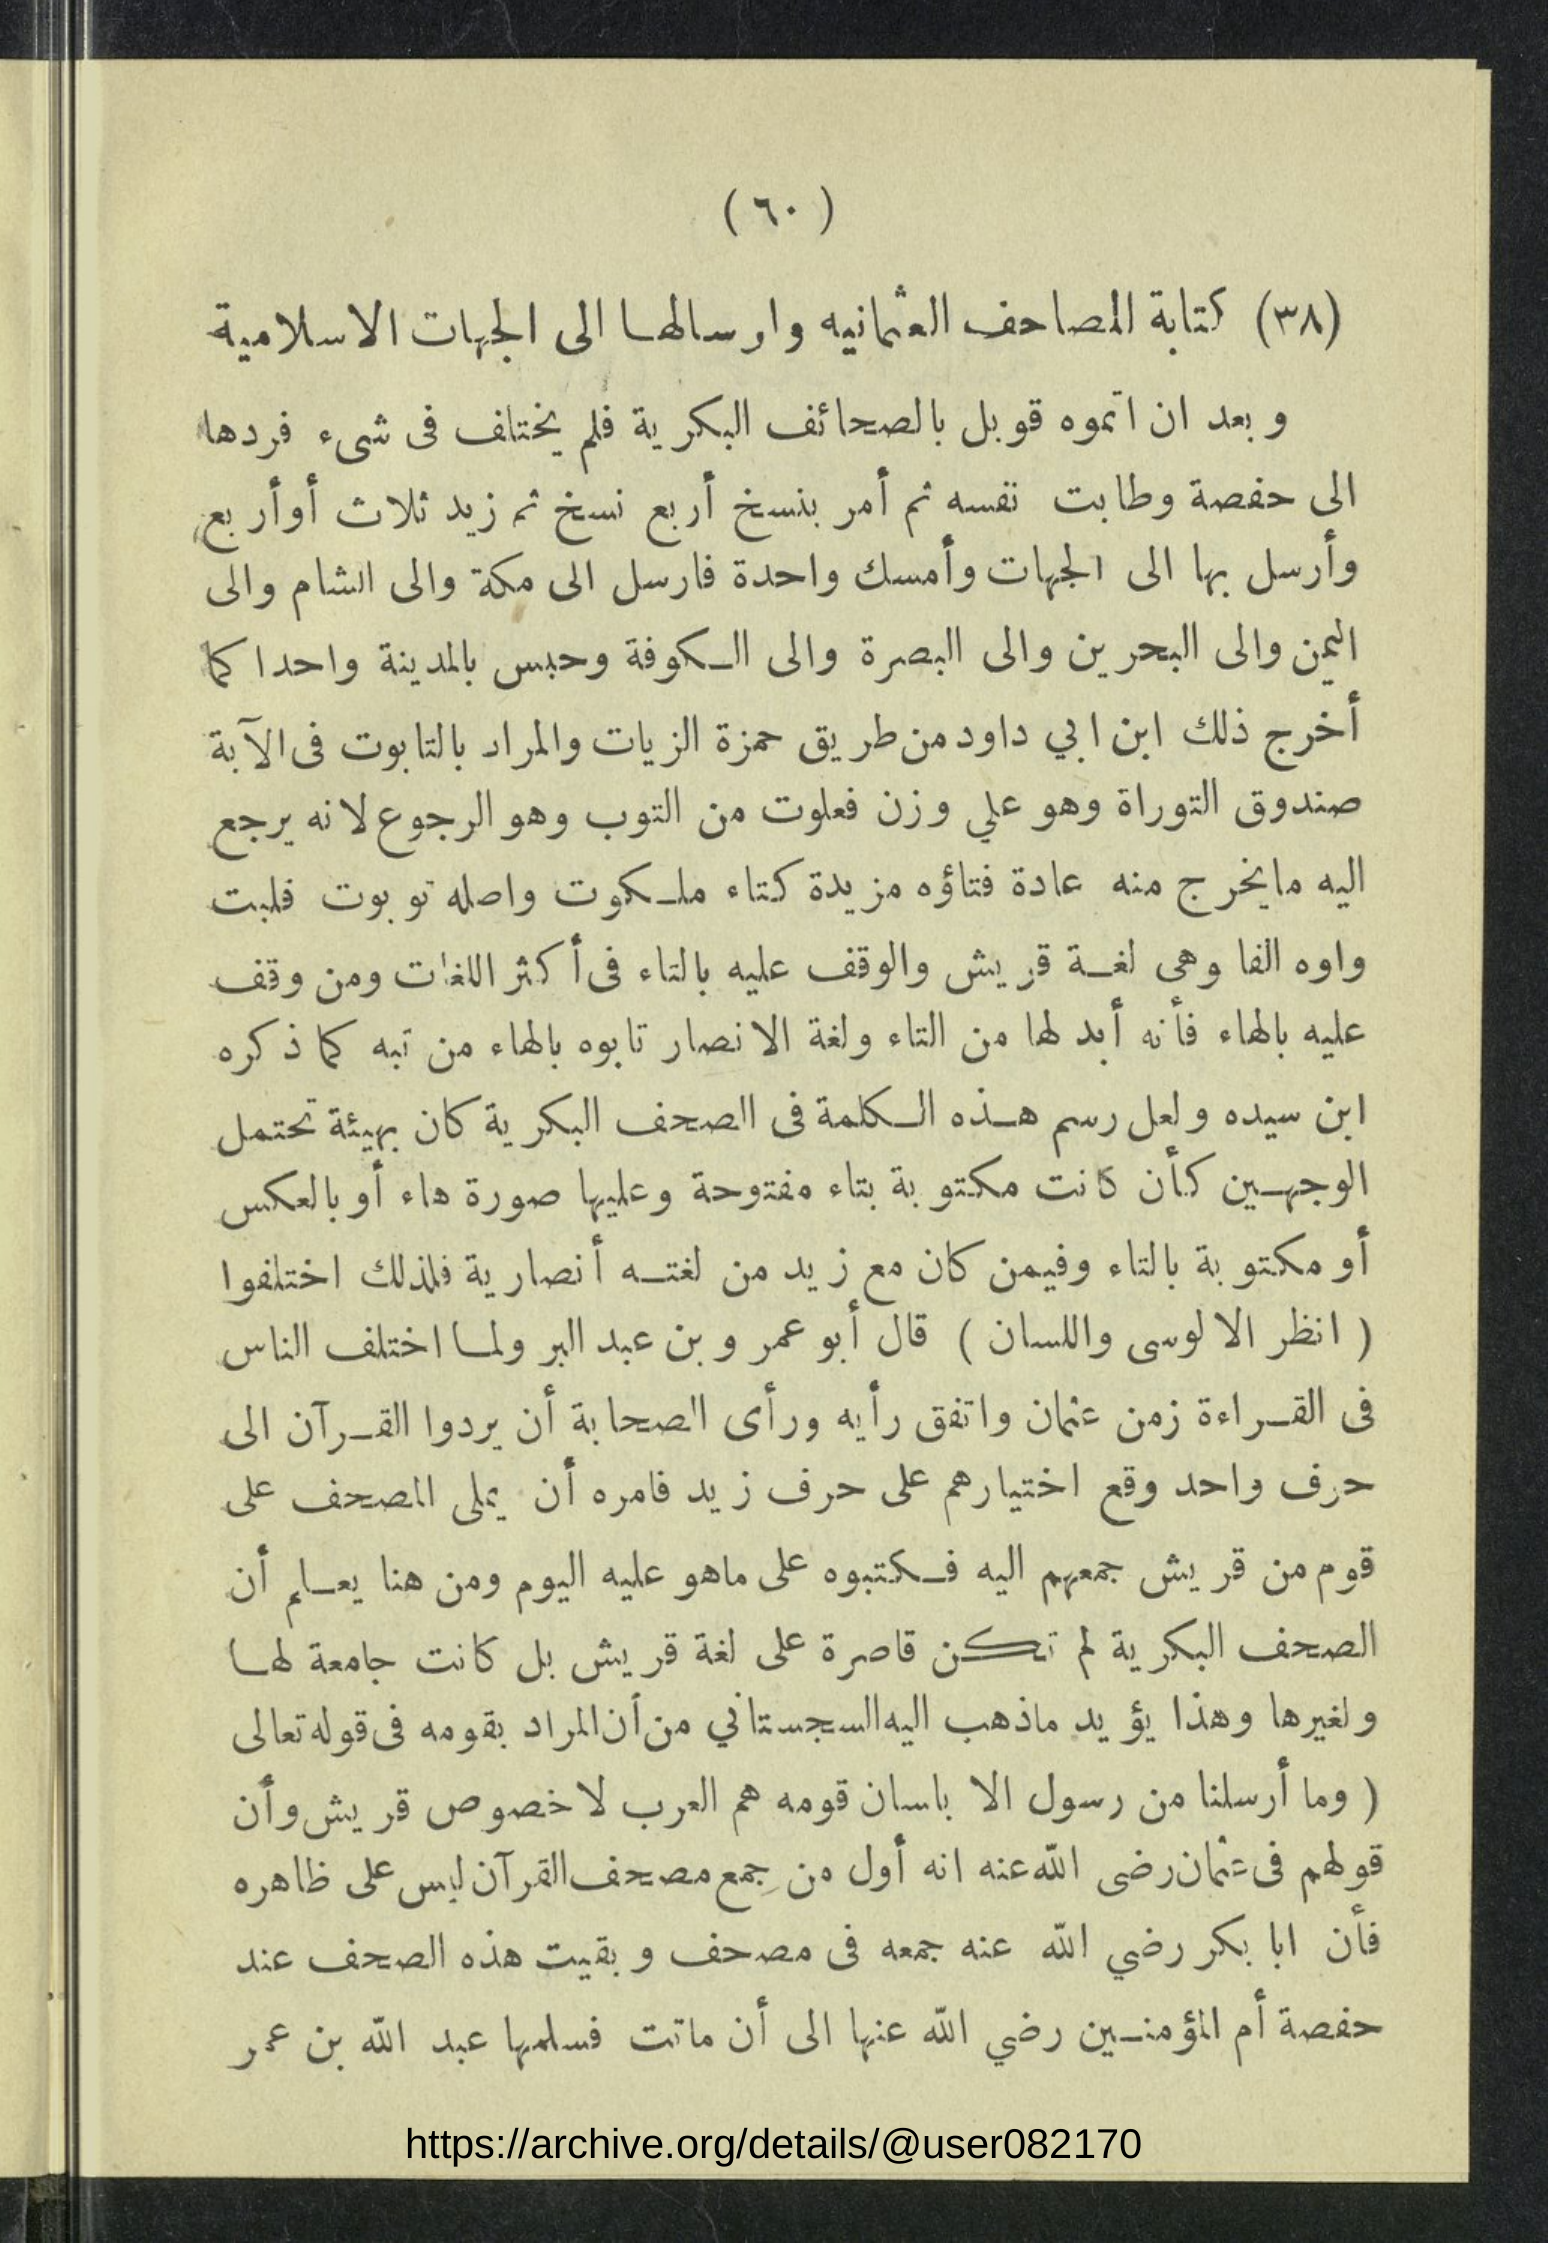 ( ٦٠ )
(٣٨) كتابة المصاحف العثمانيه وارسالها الى الجهات الاسلامية
وبعد ان اتموه قوبل بالصحائف البكرية فلم يختلف فى شىء فردها
الى حفصة وطابت نفسه ثم أمر بنسخ أربع نسخ ثم زيد ثلاث أوأربع
وأرسل بها الى الجهات وأمسك واحدة فارسل الى مكة والى الشام والى
اليمن والى البحرين والى البصرة والى الكوفة وحبس بالمدينة واحدا كما
أخرج ذلك ابن ابي داود من طريق حمزة الزيات والمراد بالتابوت فى الآية
صندوق التوراة وهو علي وزن فعلوت من التوب وهو الرجوع لانه يرجع
اليه مايخرج منه عادة فتاؤه مزيدة كتاء ملكوت واصله توبوت فلبت
واوه الفا وهى لغة قريش والوقف عليه بالتاء فى أكثر اللغات ومن وقف
عليه بالهاء فأنه أبدلها من التاء ولغة الانصار تابوه بالهاء من تبه كما ذكره
ابن سيده ولعل رسم هذه الكلمة فى الصحف البكرية كان بهيئة تحتمل
الوجهين كأن كانت مكتوبة بتاء مفتوحة وعليها صورة هاء أو بالعكس
أو مكتوبة بالتاء وفيمن كان مع زيد من لغته أنصارية فلذلك اختلفوا
( انظر الالوسى واللسان ) قال أبو عمر وبن عبد البر ولما اختلف الناس
فى القراءة زمن عثمان واتفق رأيه ورأى الصحابة أن يردوا القرآن الى
حرف واحد وقع اختيارهم على حرف زيد فامره أن يملى المصحف على
قوم من قريش جمعهم اليه فكتبوه على ماهو عليه اليوم ومن هنا يعلم أن
الصحف البكرية لم تكن قاصرة على لغة قريش بل كانت جامعة لها
ولغيرها وهذا يؤيد ماذهب اليه السجستاني من أن المراد بقومه فى قوله تعالى
( وما أرسلنا من رسول الا بلسان قومه هم العرب لا خصوص قريش وأن
قولهم فى عثمان رضى الله عنه انه أول من جمع مصحف القرآن ليس على ظاهره
فأن ابا بكر رضي الله عنه جمعه فى مصحف وبقيت هذه الصحف عند
حفصة أم المؤمنين رضي الله عنها الى أن ماتت فسلمها عبد الله بن عمر
https://archive.org/details/@user082170